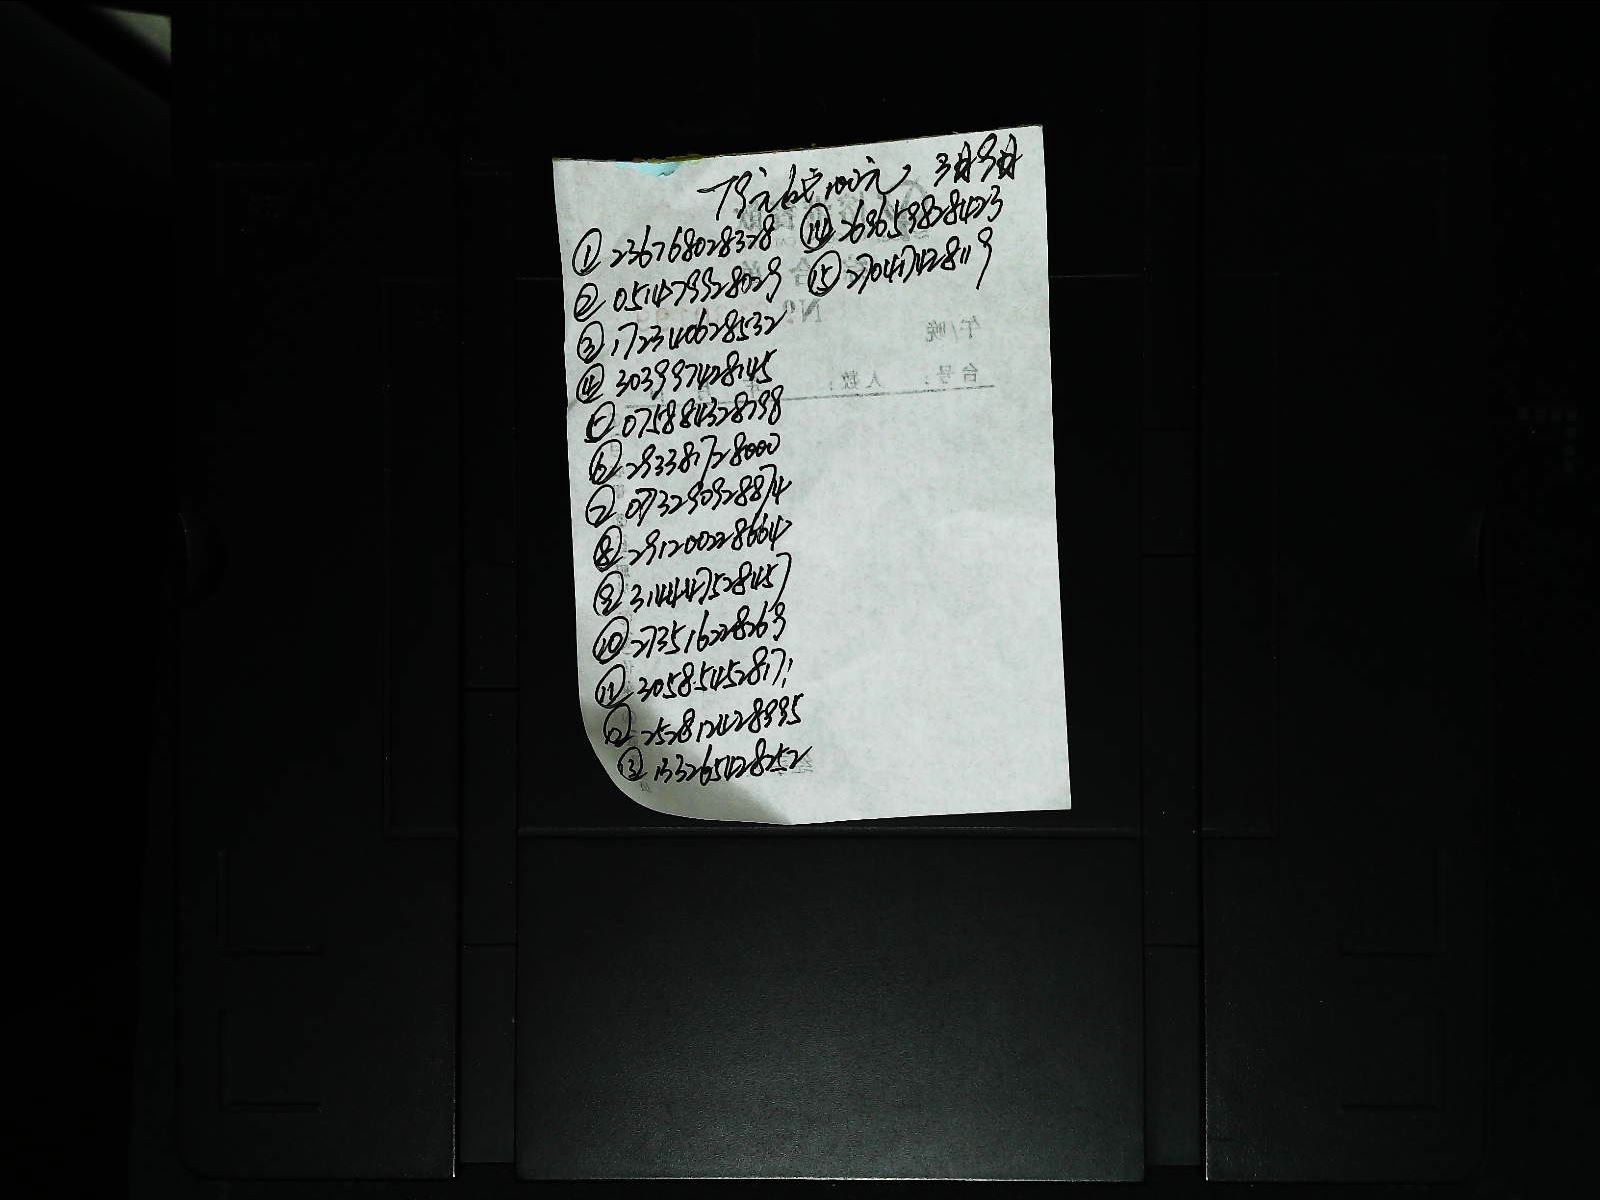 79元代100元 3月9日
① 236768028328
② 051479928029
③ 172340628532
④ 303997428145
⑤ 075884328798
⑥ 293381728000
⑦ 073290928874
⑧ 291200228664
⑨ 314447528457
⑩ 273516228269
⑪ 305854528171
⑫ 252812428995
⑬ 133265428252
⑭ 269659828423
⑮ 270417428119
№
午/晚
台号: 人数: